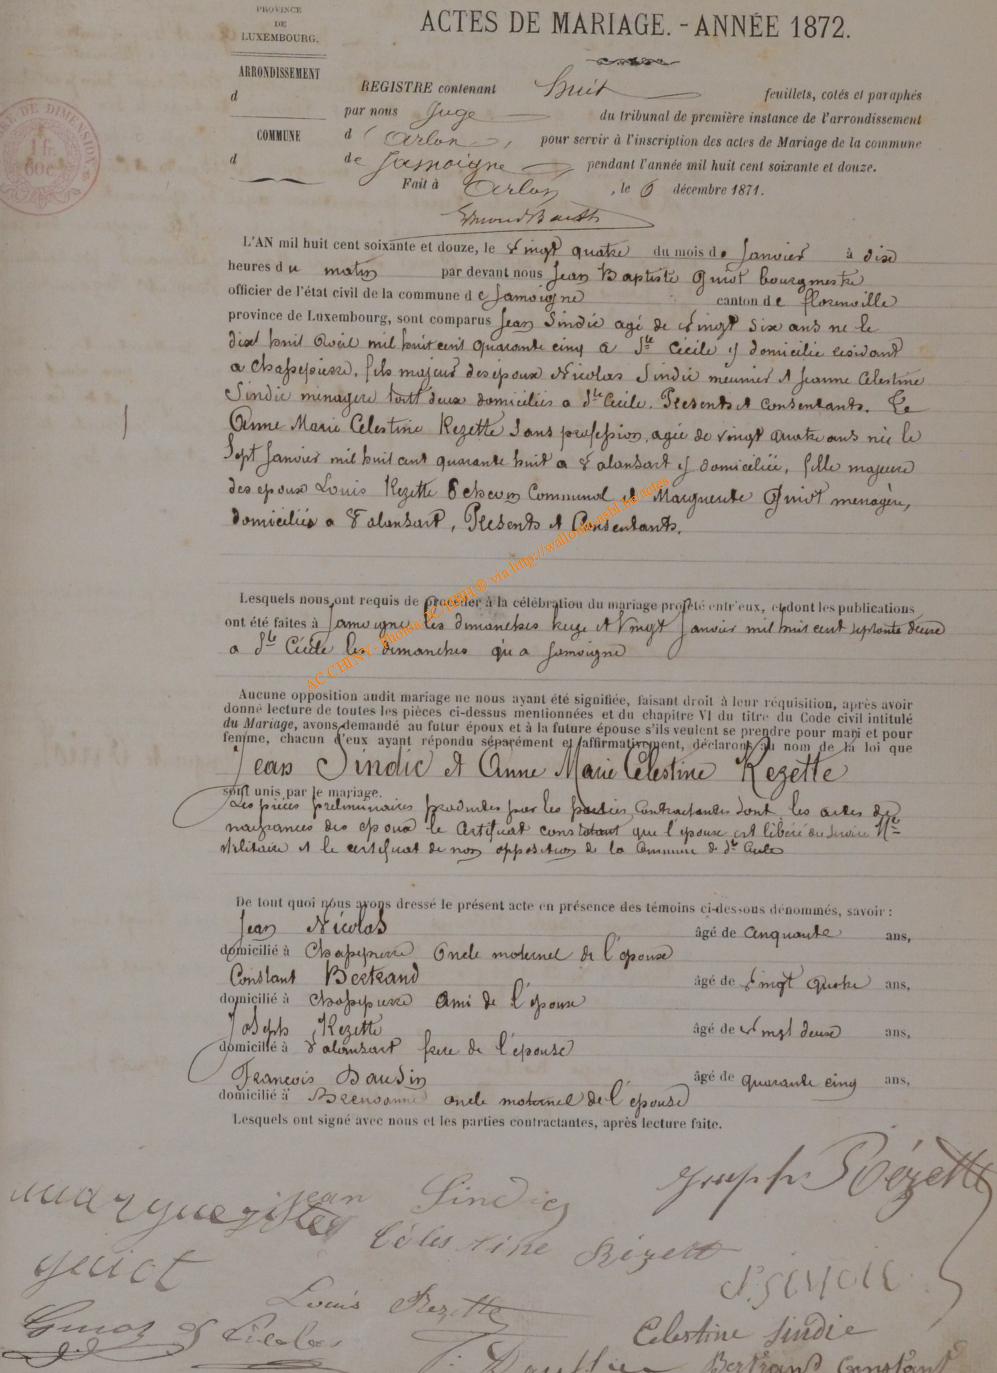 PROVINCE
DE
LUXEMBOURG.
ARRONDISSEMENT
d
COMMUNE
d
DE DIMENSION
1 fr.
60c
ACTES DE MARIAGE. - ANNÉE 1872.
REGISTRE contenant huit feuillets, cotés et paraphés
par nous Juge du tribunal de première instance de l'arrondissement
d'Arlon, pour servir à l'inscription des actes de Mariage de la commune
de Jamoigne pendant l'année mil huit cent soixante et douze.
Fait à Arlon, le 6 décembre 1871.
L'AN mil huit cent soixante et douze, le vingt quatre du mois de Janvier à dix
heures du matin par devant nous Jean Baptiste Guiot bourgmestre
officier de l'état civil de la commune de Jamoigne canton de florenville
province de Luxembourg, sont comparus Jean Sindic agé de vingt six ans né le
dix huit Avril mil huit cent quarante cinq a Ste Cécile y domicilié résidant
a Chassepierre, fils majeur des epoux Nicolas Sindic meunier et Jeanne Celestine
Sindic menagere tout deux domiciliés a Ste Cecile. Présents et Consentants. Et
Anne Marie Celestine Rezette Sans profession, agée de vingt quatre ans née le
Sept Janvier mil huit cent quarante huit a Valansart y domiciliée, fille majeure
des epoux Louis Rezette Echevin Communal et Marguerite Guiot menagère,
domiciliés a Valansart, Présents et Consentants.
Lesquels nous ont requis de procéder à la célébration du mariage projeté entr'eux, et dont les publications
ont été faites à Jamoigne les dimanches et Vingt Janvier mil huit cent septante deux
a Ste Cécile les dimanches qu'a Jamoigne
Aucune opposition audit mariage ne nous ayant été signifiée, faisant droit à leur réquisition, après avoir
donné lecture de toutes les pièces ci-dessus mentionnées et du chapitre VI du titre du Code civil intitulé
du Mariage, avons demandé au futur époux et à la future épouse s'ils veulent se prendre pour mari et pour
femme, chacun d'eux ayant répondu séparément et affirmativement, déclarons au nom de la loi que
Jean Sindic et Anne Marie Celestine Rezette
sont unis par le mariage.
Les pièces preliminaires produites par les parties Contractantes Sont les actes de
naissances des epoux le Certificat constatant que l'epoux est libéré du service
Militaire et le certificat de non opposition de la Commune de Ste Cecile
De tout quoi nous avons dressé le présent acte en présence des témoins ci-dessous dénommés, savoir :
Jean Nicolas âgé de Cinquante ans,
domicilié à Chassepierre Oncle maternel de l'epouse
Constant Bertrand âgé de Vingt Quatre ans,
domicilié à Chassepierre Ami de l'epouse
Joseph Rezette âgé de Vingt deux ans,
domicilié à Valansart frere de l'epouse
Francois Baudin âgé de quarante cinq ans,
domicilié à oncle maternel de l'epouse
Lesquels ont signé avec nous et les parties contractantes, après lecture faite.
Joseph Rézette
Marguerite Jean Sindic
Célestine Rézett
guiot
Louis Rezette
Guiot Nicolas Celestine Sindic
Bertrand Constant
AC CHINY - Photos AC-ASBH © via http://wallonia-asbl.be/actes